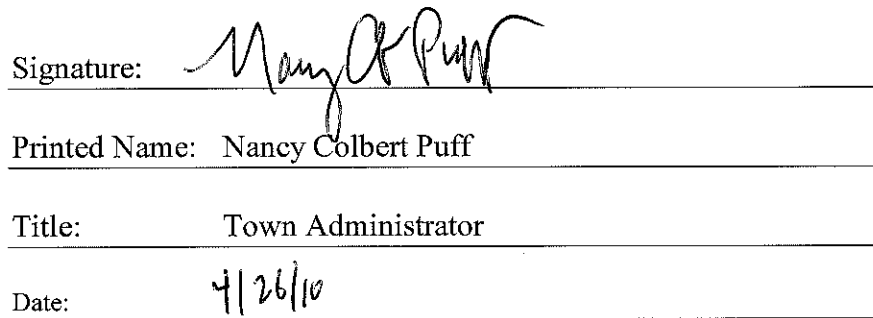 Signature: Nancy C Puff
Printed Name: Nancy Colbert Puff
Title: Town Administrator
Date: 4/26/10